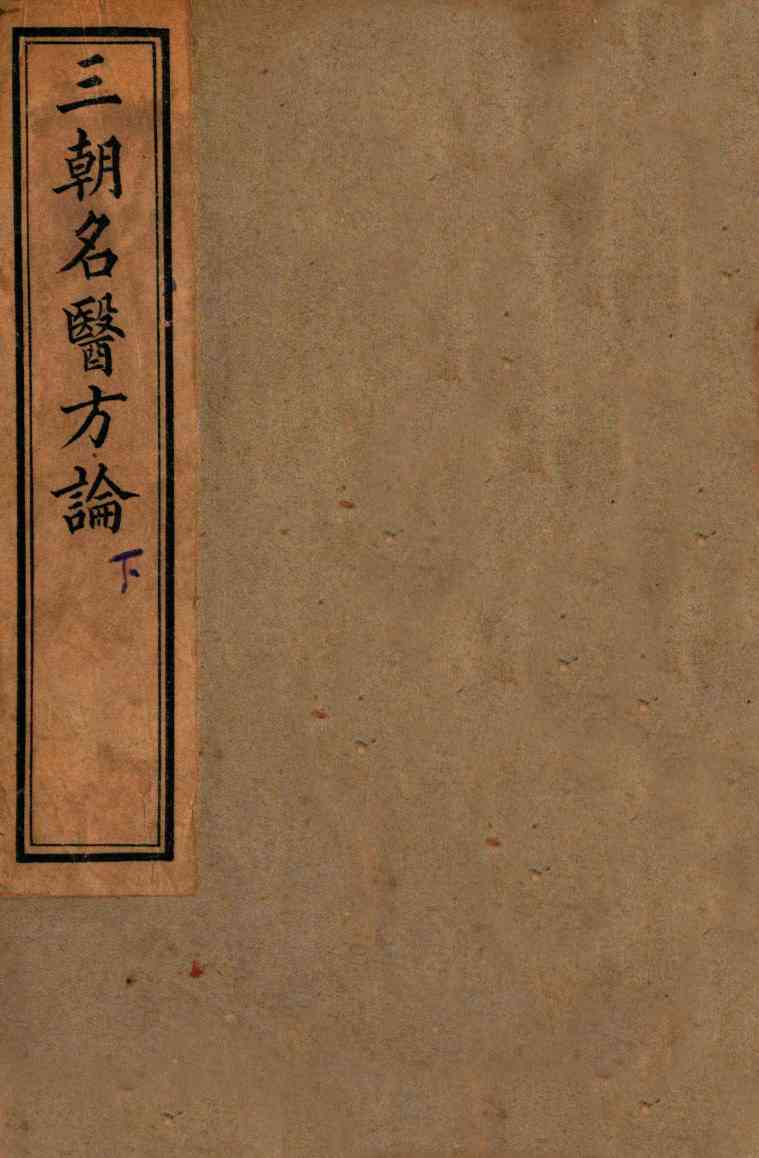 三朝名醫方論
下